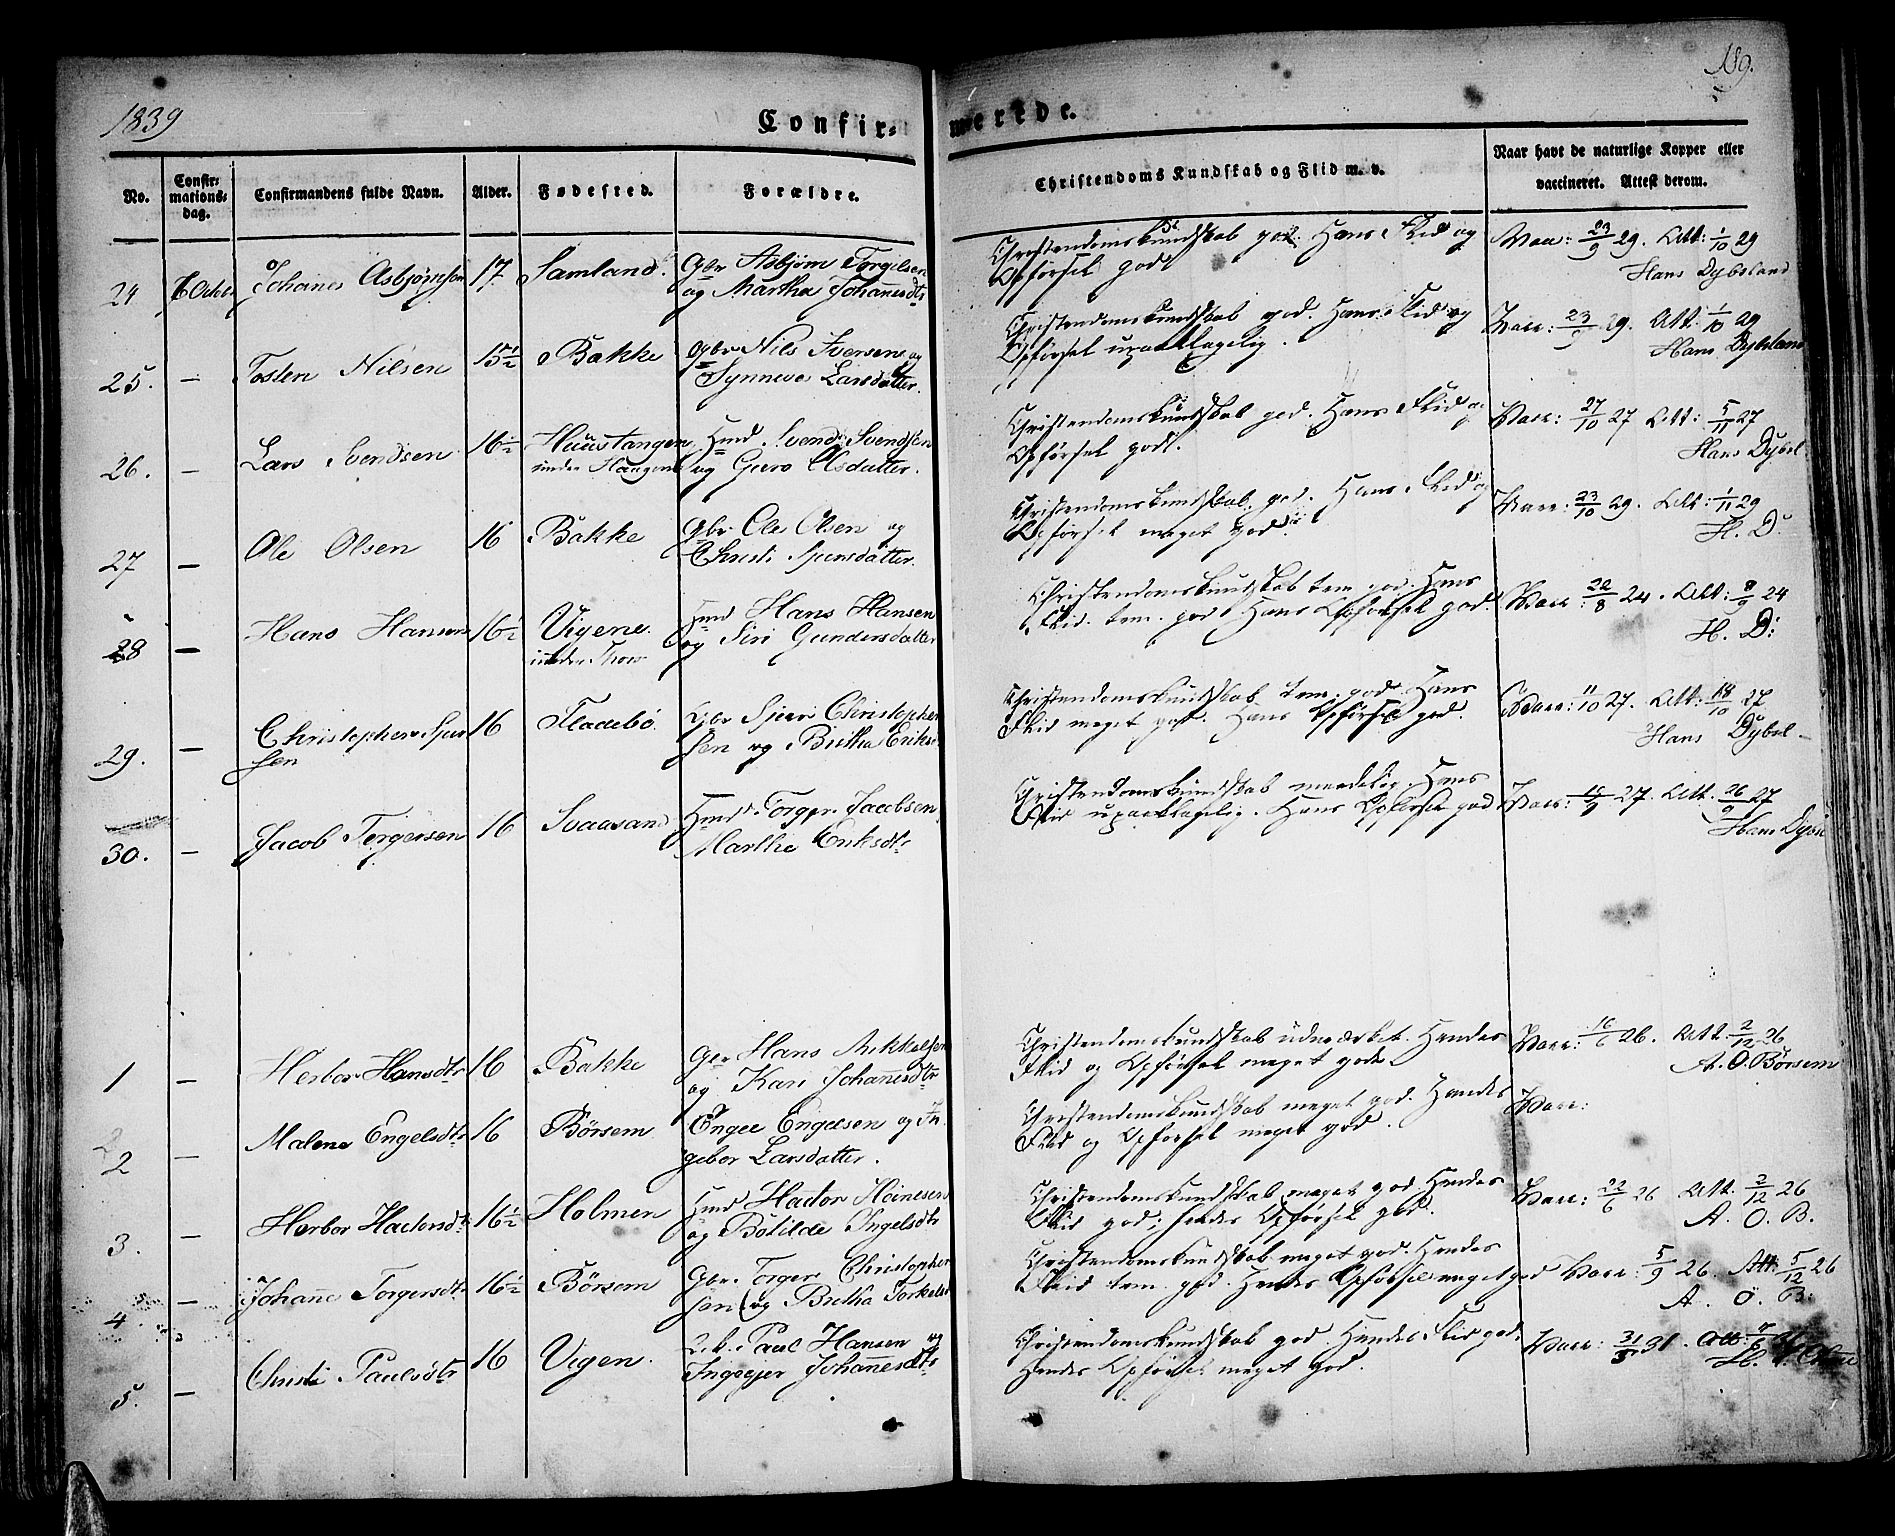 1839
189.
Confir-
merede.
No.
Confir-
mations-
dag.
Confirmandens fulde Navn.
Alder.
Fødested.
Forældre.
Christendoms Kundskab og Flid m. v.
Naar havt de naturlige Kopper eller
vaccineret. Attest derom.
24 6 Octob Johanes Asbjørnsen 17 Samland. Gbr Asbjørn Torgilsen
og Martha Johannesdtr
Christendomskundskab god. Hans Flid og
Opførsel godt
Vacc: 23/9 29. Att: 1/10 29
Hans Dybsland
25. — Tosten Nilsen 15½ Bakke Gbr Nils Iversen og
Synneve Larsdatter.
Christendomskundskab god. Hans Flid og
Opførsel upaaklagelig.
Vacc: 23/9 29. Att: 1/10 29
Hans Dybsland
26. — Lars Svendsen 16½ Huustangen Hmd Svend Svendsen
under og Guro Olsdatter.
Christendomskundskab god. Hans Flid og
Opførsel godt.
Vacc: 27/10 27 Att: 5/11 27
Hans Dybsl
27 — Ole Olsen 16 Bakke Gbr Ole Olsen og
Christi Sjursdatter.
Christendomskundskab god. Hans Flid og
Opførsel meget god.
Vacc: 23/10 29. Att: 1/11 29
H. D:
28 — Hans Hansen 16½ Vigene Hmd Hans Hansen
under og Siri Gundersdatter
Christendomskundskab tem. god. Hans
Flid tem. god Hans Opførsel god.
Vacc: 22/8 24. Att: 8/9 24
H. D:
29. — Christopher Sjur 16 Fladebø Gbr Sjur Christopher
sen sen og Britha Eriks
Christendomskundskab tem. god. Hans
Flid meget god. Hans Opførsel god.
Vacc: 11/10 27. Att: 18/10 27
Hans Dybsl-
30. — Jacob Torgersen 16 Svaasand Hmd Torger Jacobsen
Marthe Eriksdtr
Christendomskundskab maadelig. Hans
Flid upaaklagelig. Hans Opførsel god
Vacc: 27. Att. 26/9 27
Hans Dybsl
1 — Herbor Hansdtr 16 Bakke Gbr Hans Mikkelsen
og Kari Johannesdtr
Christendomskundskab udmærket. Hendes
Flid og Opførsel meget gode
Vacc: 16/6 26. Att. 2/12 26
A. O. Børsem
2 — Malene Engelsdtr 16 Børsem Engel Engelsen og In
gebor Larsdatter.
Christendomskundskab meget god. Hendes
Flid og Opførsel meget god.
Vacc:
3. — Herbor Hadorsdtr 16½ Holmen Hmd Hador Heinesen
og Botilde Ingelsdtr
Christendomskundskab meget god. Hendes
Flid god; hendes Opførsel god.
Vacc: 22/6 26 Att. 2/12 26
A. O. B.
4. — Johanne Torgersdtr 16½ Børsem Gbr. Torger Christopher
sen og Britha Torkels
Christendomskundskab meget god. Hendes
Flid tem. god. Hendes Opførsel meget god
Vacc: 5/9 26. Att: 5/12 26
A. O. B.
5. — Christi Paulsdtr 16 Vigen. Paul Hansen og
Ingeger Johannesdtr
Christendomskundskab god. Hendes Flid god.
Hendes Opførsel meget god.
Vacc: 31/5 31. Att: